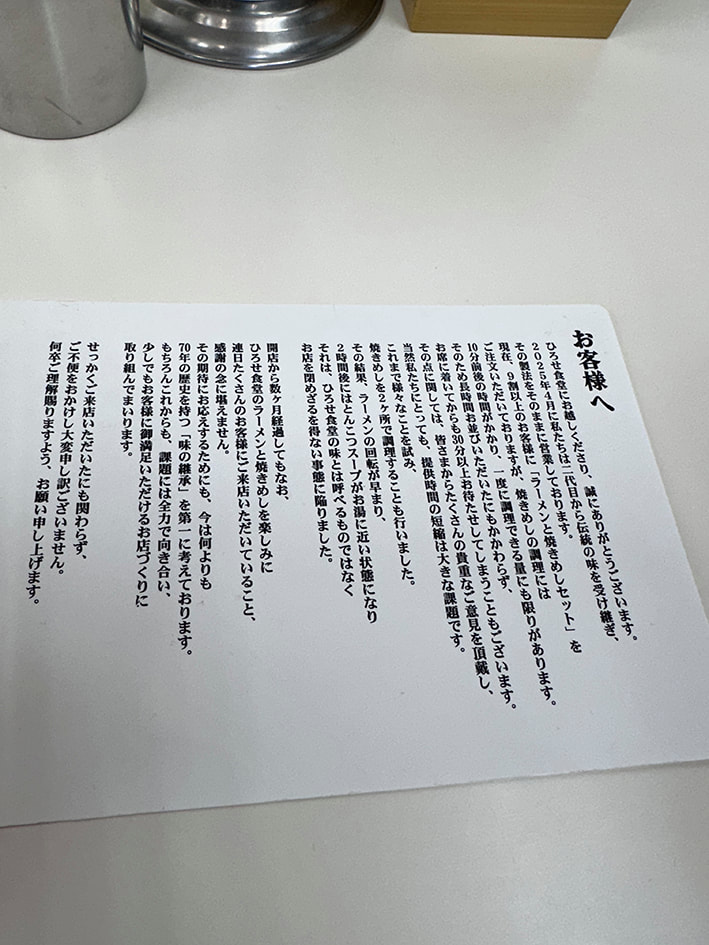 お客様へ
ひろせ食堂にお越しくださり、誠にありがとうございます。
2025年4月に私たちは二代目から伝統の味を受け継ぎ、
その製法をそのままに営業しております。
現在、9割以上のお客様に「ラーメンと焼きめしセット」を
ご注文いただいておりますが、焼きめしの調理には
10分前後の時間がかかり、一度に調理できる量にも限りがあります。
そのため長時間お並びいただいたにもかかわらず、
お席に着いてからも30分以上お待たせしてしまうこともございます。
その点に関しては、皆さまからたくさんの貴重なご意見を頂戴し、
当然私たちにとっても、提供時間の短縮は大きな課題です。
これまで様々なことを試み、
焼きめしを2ヶ所で調理することも行いました。
その結果、ラーメンの回転が早まり、
2時間後にはとんこつスープがお湯に近い状態になり
それは、ひろせ食堂の味とは呼べるものではなく
お店を閉めざるを得ない事態に陥りました。
開店から数ヶ月経過してもなお、
ひろせ食堂のラーメンと焼きめしを楽しみに
連日たくさんのお客様にご来店いただいていること、
感謝の念に堪えません。
その期待にお応えするためにも、今は何よりも
70年の歴史を持つ「味の継承」を第一に考えております。
もちろんこれからも、課題には全力で向き合い、
少しでもお客様に御満足いただけるお店づくりに
取り組んでまいります。
せっかくご来店いただいたにも関わらず、
ご不便をおかけし大変申し訳ございません。
何卒ご理解賜りますよう、お願い申し上げます。